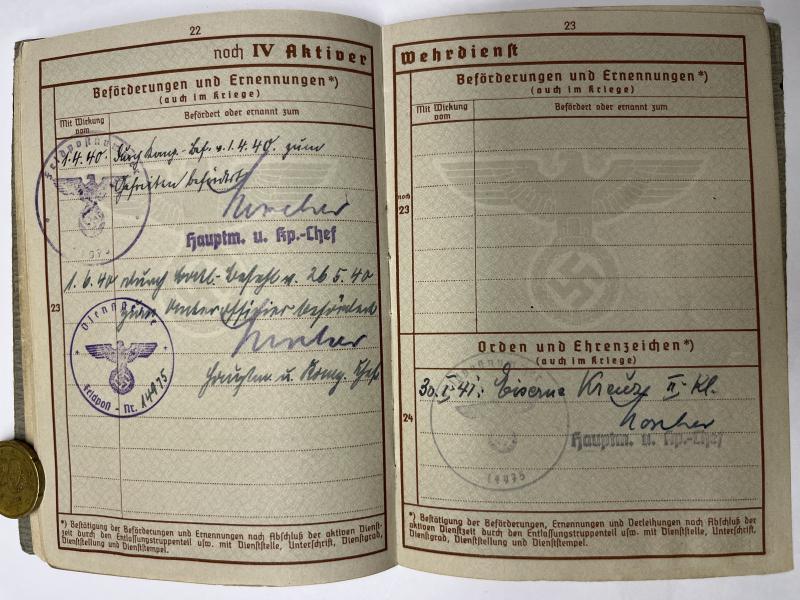 22
noch IV Aktiver
Beförderungen und Ernennungen*)
(auch im Kriege)
Mit Wirkung vom
Befördert oder ernannt zum
1.4.40. Durch Komp.-Bef. v. 1.4.40. zum
Gefreiten befördert
Hauptm. u. Kp.-Chef
23
1.6.40 durch Batl.-Befehl v. 26.5.40
zum Unteroffizier befördert
Hauptm u. Komp. Chef
Dienststelle
Feldpost-Nr. 14975
*) Bestätigung der Beförderungen und Ernennungen nach Abschluß der aktiven Dienst-
zeit durch den Entlassungstruppenteil usw. mit Dienststelle, Unterschrift, Dienstgrad,
Dienststellung und Dienststempel.
23
Wehrdienst
Beförderungen und Ernennungen*)
(auch im Kriege)
Mit Wirkung vom
Befördert oder ernannt zum
noch
23
Orden und Ehrenzeichen*)
(auch im Kriege)
24
Eiserne Kreuz II. Kl.
Hauptm. u. Kp.-Chef
14975
*) Bestätigung der Beförderungen, Ernennungen und Verleihungen nach Abschluß der
aktiven Dienstzeit durch den Entlassungstruppenteil usw. mit Dienststelle, Unterschrift,
Dienstgrad, Dienststellung und Dienststempel.